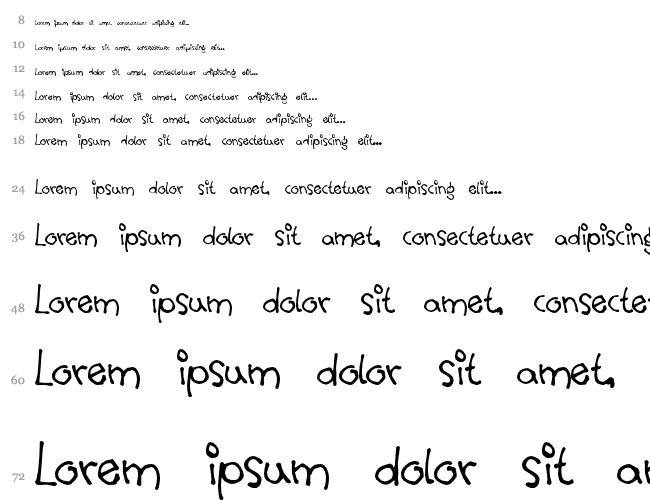 8 Lorem ipsum dolor sit amet, consectetuer adipiscing elit...
10 Lorem ipsum dolor sit amet, consectetuer adipiscing elit...
12 Lorem ipsum dolor sit amet, consectetuer adipiscing elit...
14 Lorem ipsum dolor sit amet, consectetuer adipiscing elit...
16 Lorem ipsum dolor sit amet, consectetuer adipiscing elit...
18 Lorem ipsum dolor sit amet, consectetuer adipiscing elit...
24 Lorem ipsum dolor sit amet, consectetuer adipiscing elit...
36 Lorem ipsum dolor sit amet, consectetuer adipiscing
48 Lorem ipsum dolor sit amet, consecte
60 Lorem ipsum dolor sit amet,
72 Lorem ipsum dolor sit a